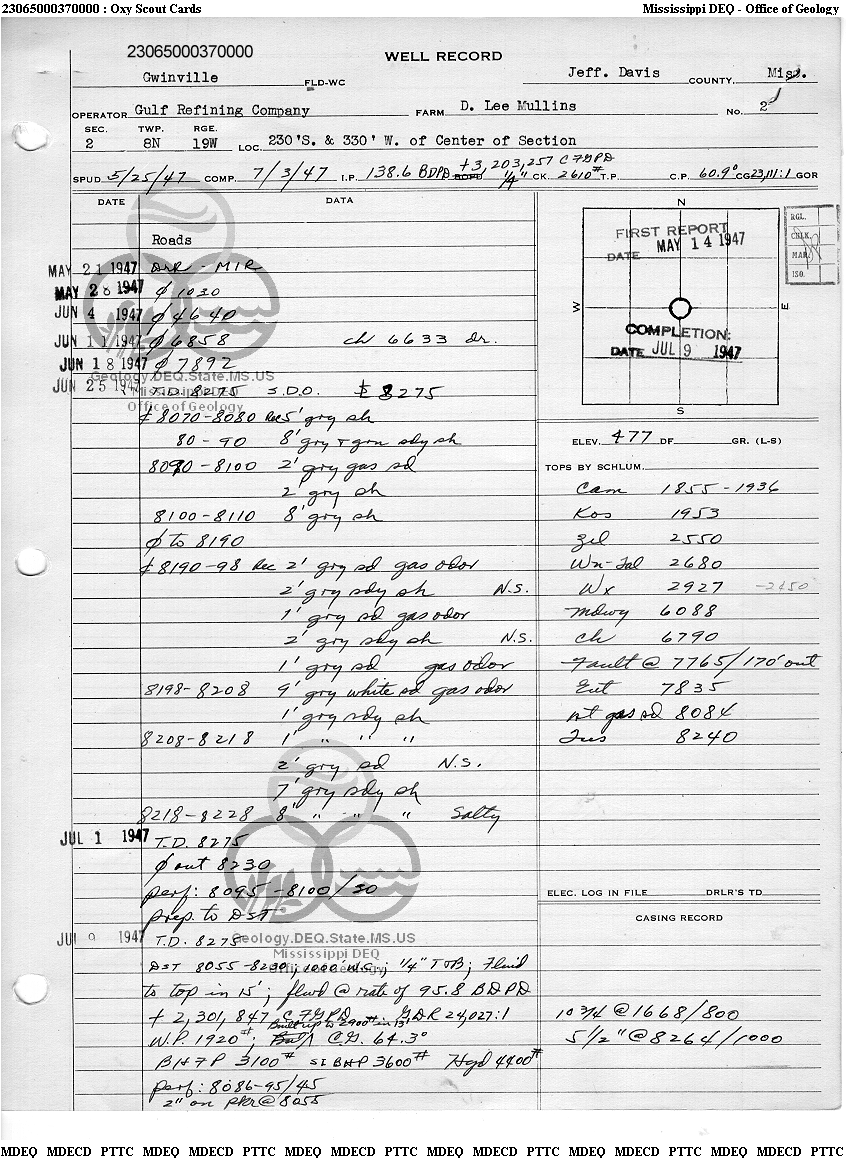 23065000370000 : Oxy Scout Cards
Mississippi DEQ - Office of Geology
23065000370000
WELL RECORD
Gwinville FLD-WC Jeff. Davis COUNTY, Miss.
OPERATOR Gulf Refining Company FARM D. Lee Mullins No. 2
SEC. TWP. RGE.
2 8N 19W LOC. 230'S. & 330' W. of Center of Section
SPUD 5/25/47 COMP. 7/3/47 I.P. 138.6 BDPD +3,203,257 CFGPD 1/4" CK. 2610# T.P. C.P. 60.9° CG 23,111:1 GOR
DATE DATA
Roads
MAY 21 1947 DrR - MIR
MAY 28 1947 ϕ 1030
JUN 4 1947 ϕ 4640
JUN 11 1947 ϕ 6858 ch 6633 dr.
JUN 18 1947 ϕ 7892
Geology.DEQ.State.MS.US
JUN 25 1947 T.D. 8275 S.D.O. E 8275
Mississippi DEQ
Office of Geology
₵ 8070-8080 Rec 5' gry sh
80-90 8' gry + grn sdy sh
8090-8100 2' gry gas sd
2' gry sh
8100-8110 8' gry sh
ϕ to 8190
₵ 8190-98 Rec 2' gry sd gas odor
2' gry sdy sh N.S.
1' gry sd gas odor
2' gry sdy sh N.S.
1' gry sd gas odor
8198-8208 9' gry white sd gas odor
1' gry sdy sh
8208-8218 1' " " "
2' gry sd N.S.
7' gry sdy sh
8218-8228 8' " " " Salty
JUL 1 1947 T.D. 8275
ϕ out 8230
perf: 8095-8100/30
prep. to DST
JUL 9 1947 T.D. 8275
Geology.DEQ.State.MS.US
Mississippi DEQ
Office of Geology
DST 8055-8230; 1000' W.C.; 1/4" T&B; Fluid
to top in 15'; flwd @ rate of 95.8 BDPD
+ 2,301,847 CFGPD GDR 24,027:1
Built up to 2900# in 13'
W.P. 1920#; C.G. 64.3°
BHFP 3100# SI BHP 3600# Hyd 4400#
perf: 8086-95/45
2" on pkr @ 8055
N
W
E
S
FIRST REPORT
DATE MAY 14 1947
COMPLETION:
DATE JUL 9 1947
RGL.
CHLK.
MAP.
ISO.
ELEV. 477 DF GR. (L-S)
TOPS BY SCHLUM.
Cam 1855-1936
Kos 1953
Zil 2550
Wn-Tal 2680
Wx 2927 -2450
Mdwy 6088
Ch 6790
Fault @ 7765/170' out
Eut 7835
gas sd 8084
Tus 8240
ELEC. LOG IN FILE DRLR'S TD
CASING RECORD
10 3/4 @ 1668/800
5 1/2" @ 8264/1000
MDEQ MDECD PTTC MDEQ MDECD PTTC MDEQ MDECD PTTC MDEQ MDECD PTTC MDEQ MDECD PTTC MDEQ MDECD PTTC